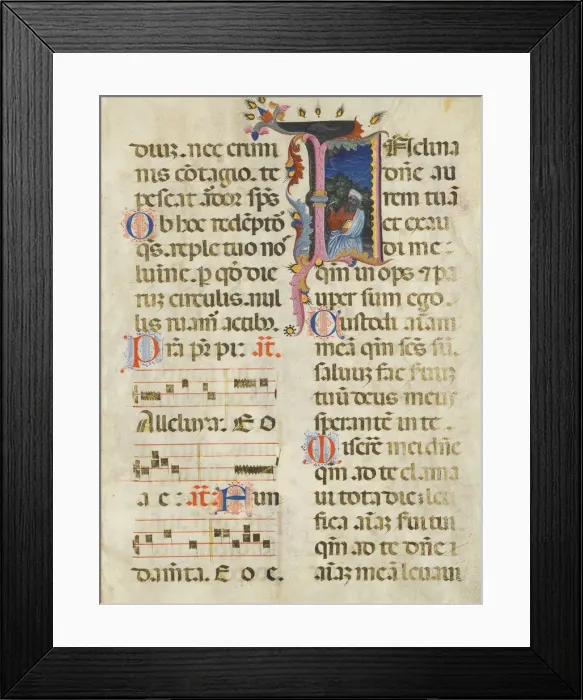 duiz. nec crimi
nis cōtagio. te
pescat ardor sp̄s
Ob hoc redēptoꝛ
qs̄. reple tuo nō
lumīe. p qō die
rūz circulis. nul
lis ruam̄ actibꝰ.
Prā pr̄ pi: at̄.
Alleluya. E O
a e: at̄: Hun
dam̄ta. E O e.
Inclina
dn̄e au
rem tuā
et exau
di me:
qm̄ inops ⁊ pa
uper sum ego.
Custodi aīam
meā qm̄ scs̄ sū.
saluūz fac seruūz
tuū deus meus
sperantē in te.
Misere mei dn̄e
qm̄ ad te clama
ui tota die: leti
fica aīaz serui tui
qm̄ ad te dn̄e
aīaz meā leuaui